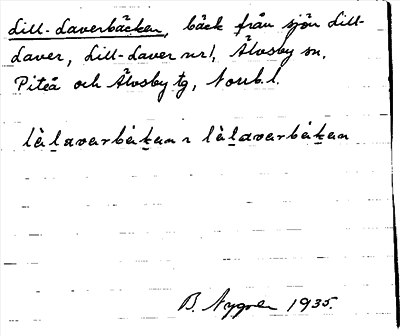 Lill-Laverbäcken, bäck från sjön Lill-
Laver, Lill-Laver nr 1, Älvsby sn.
Piteå och Älvsby tg, Norrb. l.
lèḷaverbàḵan n lèḷaverbàḵan
B. Nygren 1935.